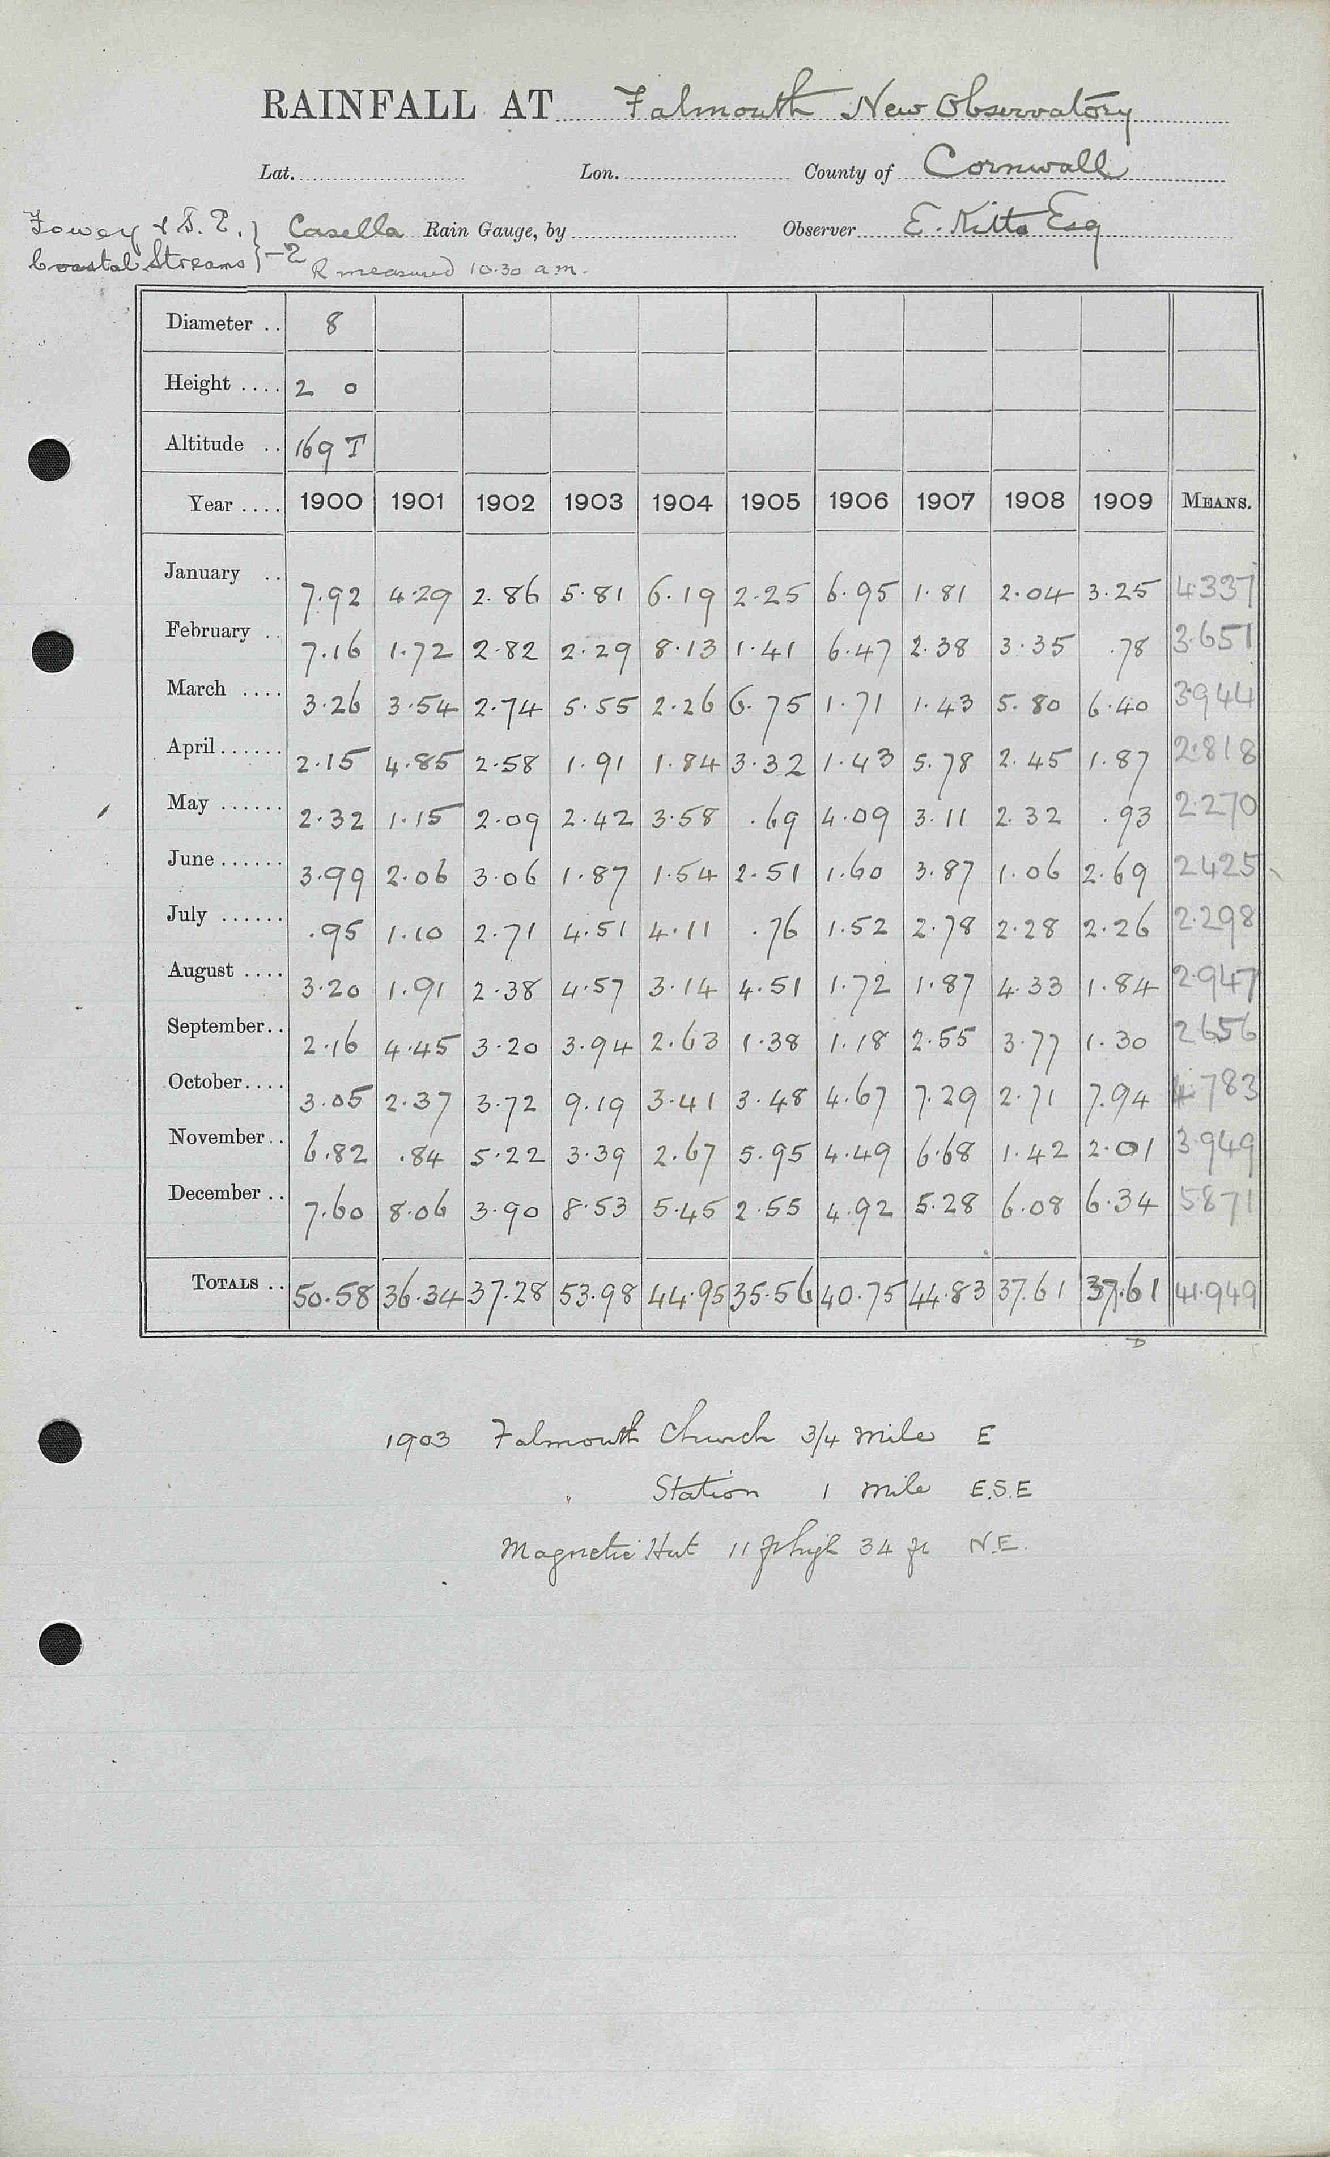 RAINFALL AT Falmouth New Observatory
Lat. Lon. County of Cornwall
Fowey & S.E. } Casella Rain Gauge, by Observer E. Kitto Esq
Coastal Streams } -2 R measured 10.30 a.m.
Diameter .. 8
Height .... 2 0
Altitude .. 169 T
Year .... 1900 1901 1902 1903 1904 1905 1906 1907 1908 1909 MEANS.
January .. 7.92 4.29 2.86 5.81 6.19 2.25 6.95 1.81 2.04 3.25 4337
February .. 7.16 1.72 2.82 2.29 8.13 1.41 6.47 2.38 3.35 .78 3.651
March .... 3.26 3.54 2.74 5.55 2.26 6.75 1.71 1.43 5.80 6.40 3944
April ...... 2.15 4.85 2.58 1.91 1.84 3.32 1.43 5.78 2.45 1.87 2.818
May ...... 2.32 1.15 2.09 2.42 3.58 .69 4.09 3.11 2.32 .93 2.270
June ...... 3.99 2.06 3.06 1.87 1.54 2.51 1.60 3.87 1.06 2.69 2425
July ...... .95 1.10 2.71 4.51 4.11 .76 1.52 2.78 2.28 2.26 2.298
August .... 3.20 1.91 2.38 4.57 3.14 4.51 1.72 1.87 4.33 1.84 2.947
September .. 2.16 4.45 3.20 3.94 2.63 1.38 1.18 2.55 3.77 1.30 2656
October .... 3.05 2.37 3.72 9.19 3.41 3.48 4.67 7.29 2.71 7.94 4.783
November .. 6.82 .84 5.22 3.39 2.67 5.95 4.49 6.68 1.42 2.01 3.949
December .. 7.60 8.06 3.90 8.53 5.45 2.55 4.92 5.28 6.08 6.34 5871
TOTALS .. 50.58 36.34 37.28 53.98 44.95 35.56 40.75 44.83 37.61 37.61 41.949
1903 Falmouth Church 3/4 mile E
" Station 1 mile E.S.E
Magnetic Hut 11 ft high 34 ft N.E.